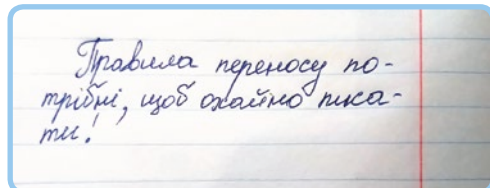 Правила переносу по-
трібні, щоб охайно писа-
ти!